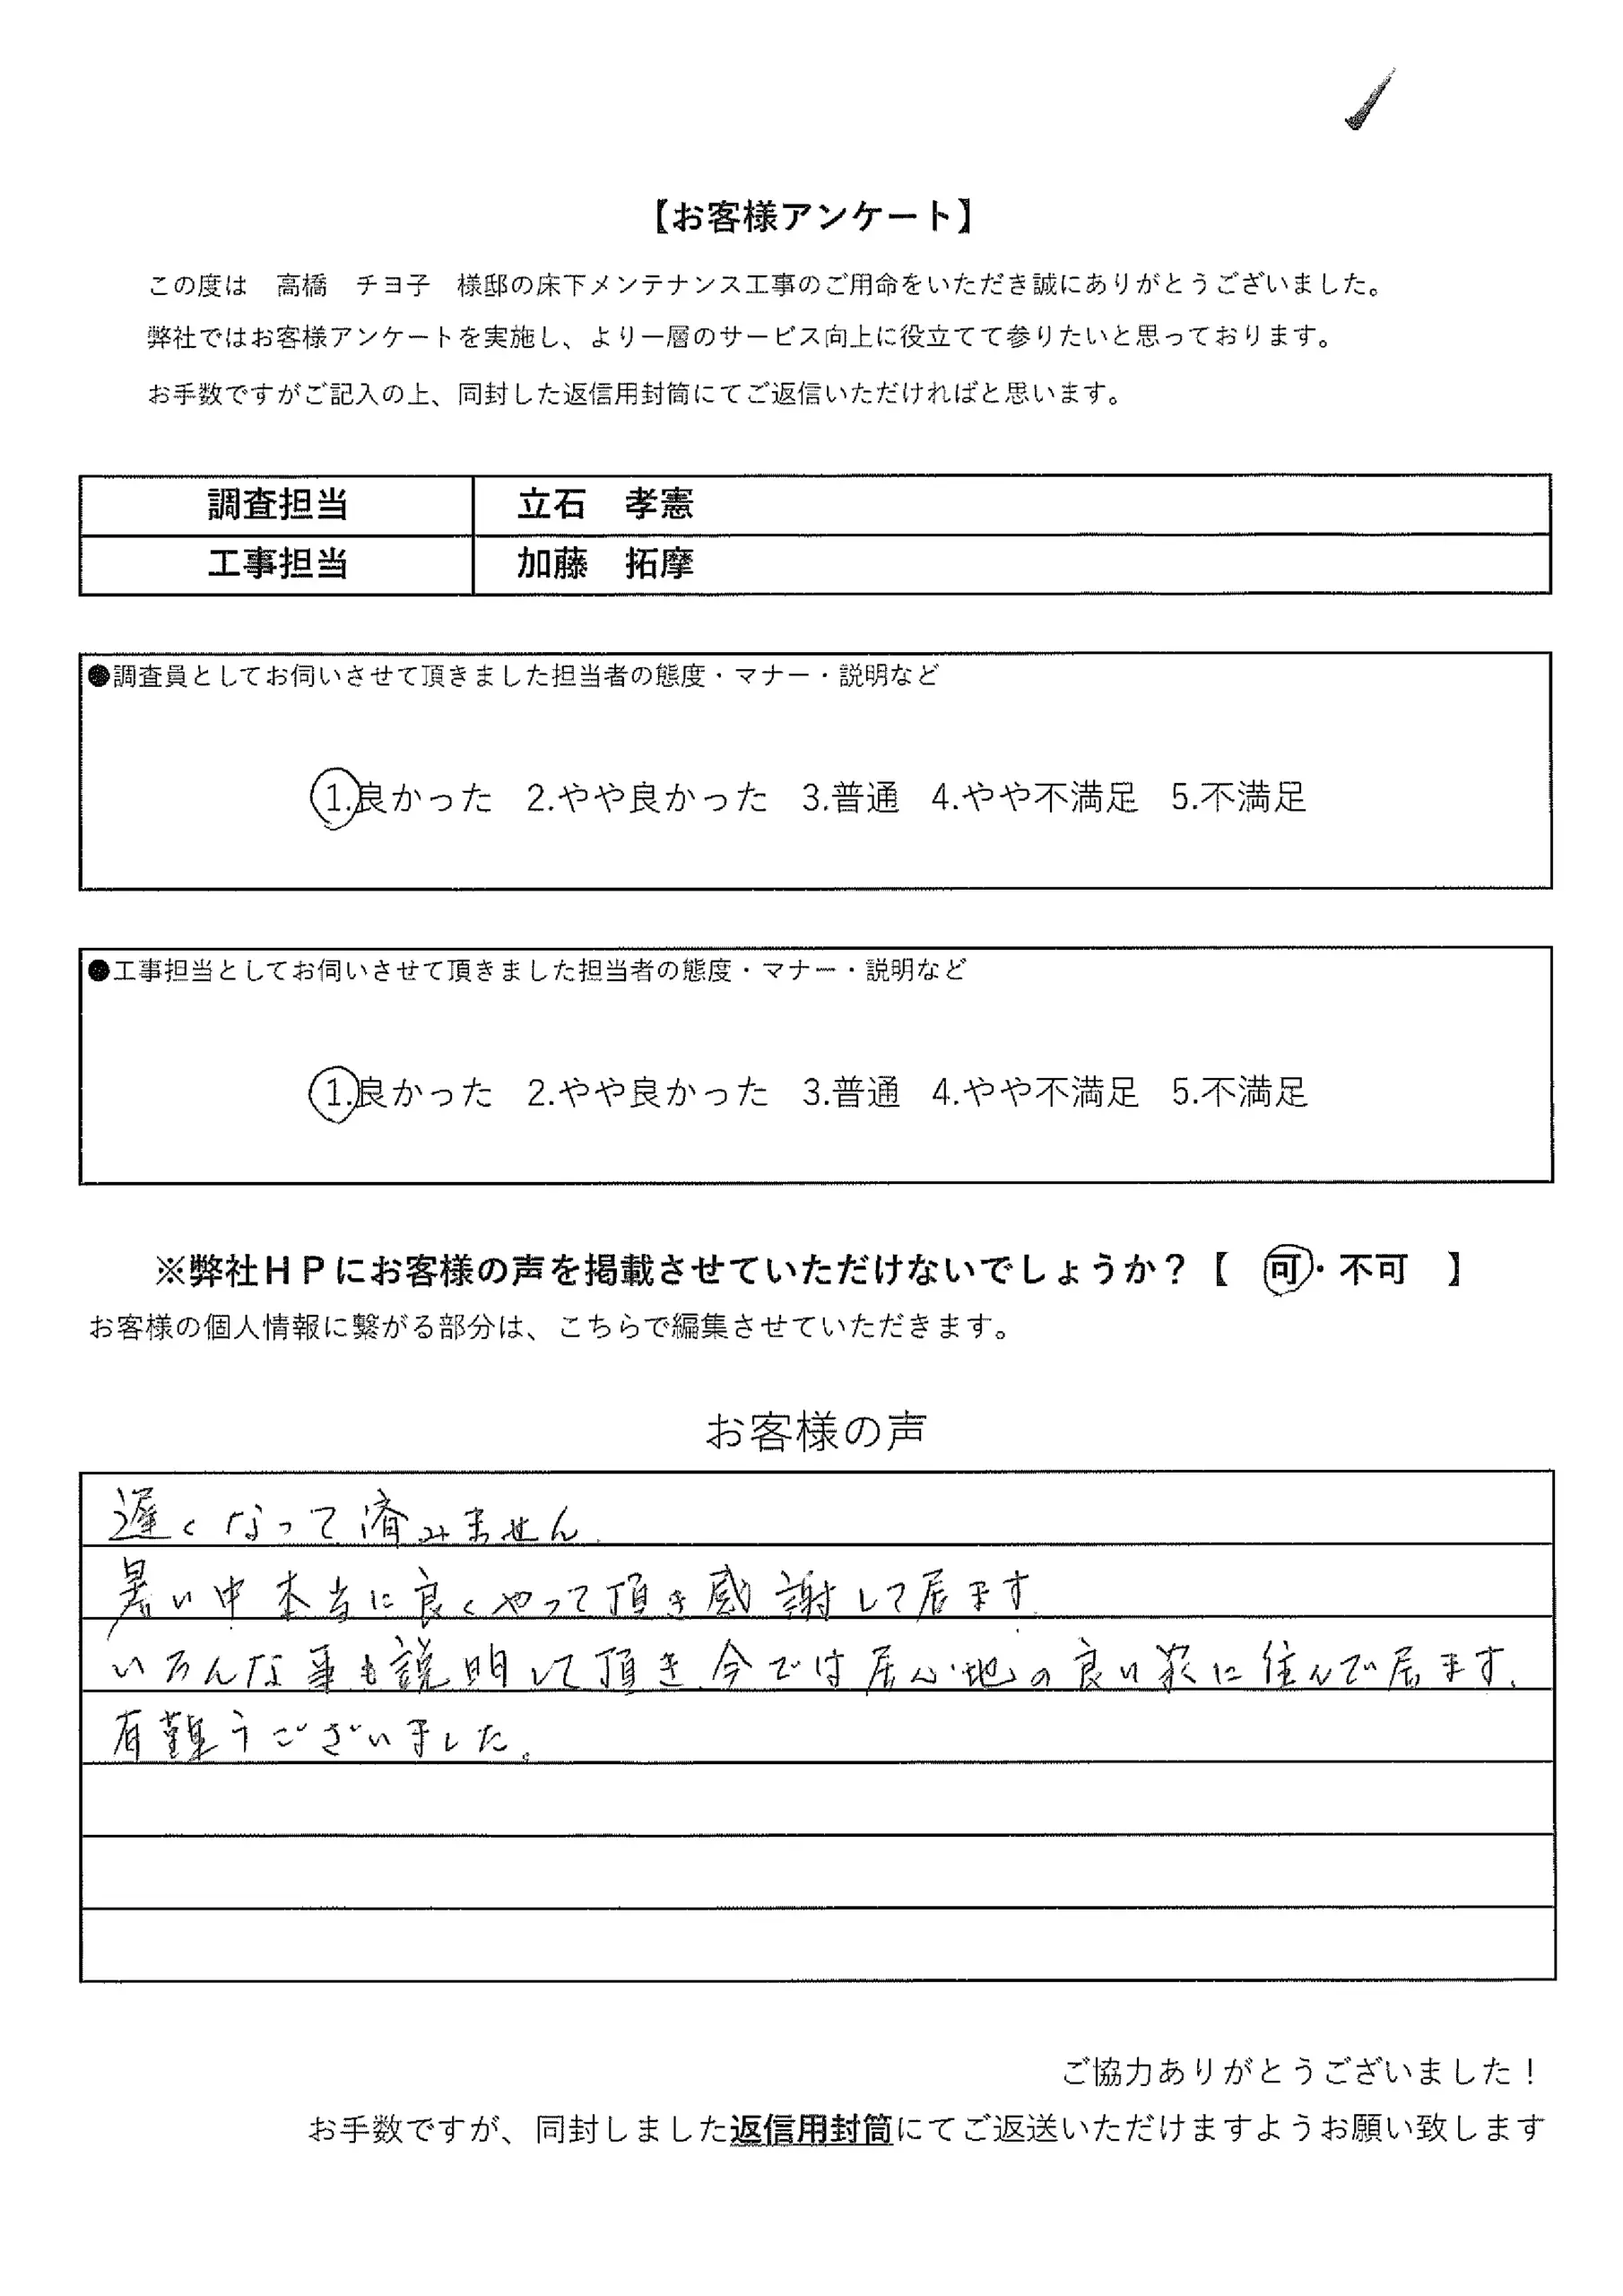 【お客様アンケート】
この度は　高橋　チヨ子　様邸の床下メンテナンス工事のご用命をいただき誠にありがとうございました。
弊社ではお客様アンケートを実施し、より一層のサービス向上に役立てて参りたいと思っております。
お手数ですがご記入の上、同封した返信用封筒にてご返信いただければと思います。
調査担当　立石　孝憲
工事担当　加藤　拓摩
●調査員としてお伺いさせて頂きました担当者の態度・マナー・説明など
1.良かった　2.やや良かった　3.普通　4.やや不満足　5.不満足
●工事担当としてお伺いさせて頂きました担当者の態度・マナー・説明など
1.良かった　2.やや良かった　3.普通　4.やや不満足　5.不満足
※弊社ＨＰにお客様の声を掲載させていただけないでしょうか？【　可・不可　】
お客様の個人情報に繋がる部分は、こちらで編集させていただきます。
お客様の声
遅くなって済みません.
暑い中本当に良くやって頂き感謝して居ます.
いろんな事も説明して頂き.今では居心地の良い家に住んで居ます.
有難うございました。
ご協力ありがとうございました！
お手数ですが、同封しました返信用封筒にてご返送いただけますようお願い致します